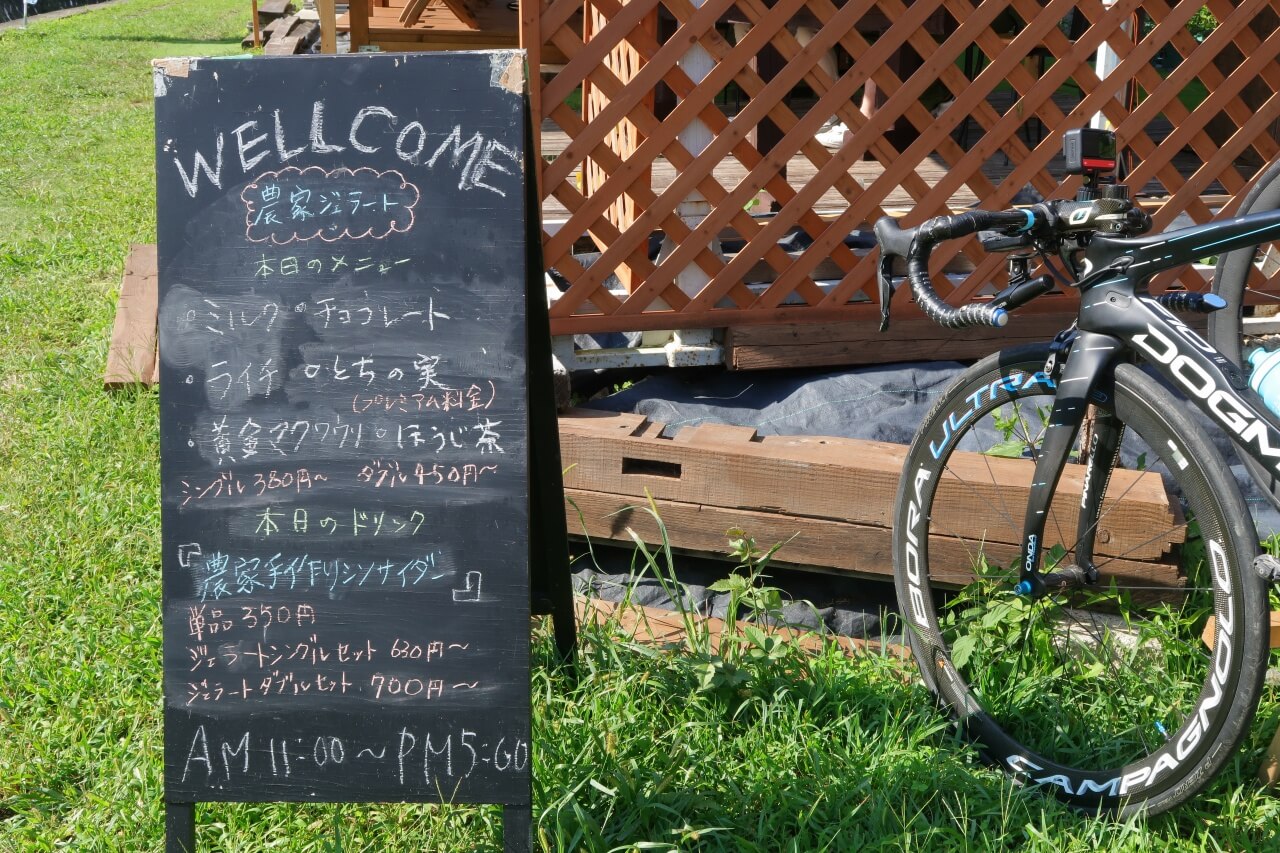 WELLCOME
農家ジェラート
本日のメニュー
・ミルク・チョコレート
・ライチ ・とちの実
(プレミアム料金)
・黄金マクワウリ・ほうじ茶
シングル380円〜 ダブル450円〜
本日のドリンク
『農家手作りシソサイダー』
単品350円
ジェラートシングルセット 630円〜
ジェラートダブルセット 700円〜
AM11:00〜PM5:00
BORA ULTRA
CAMPAGNOLO
DOGM
ONDA